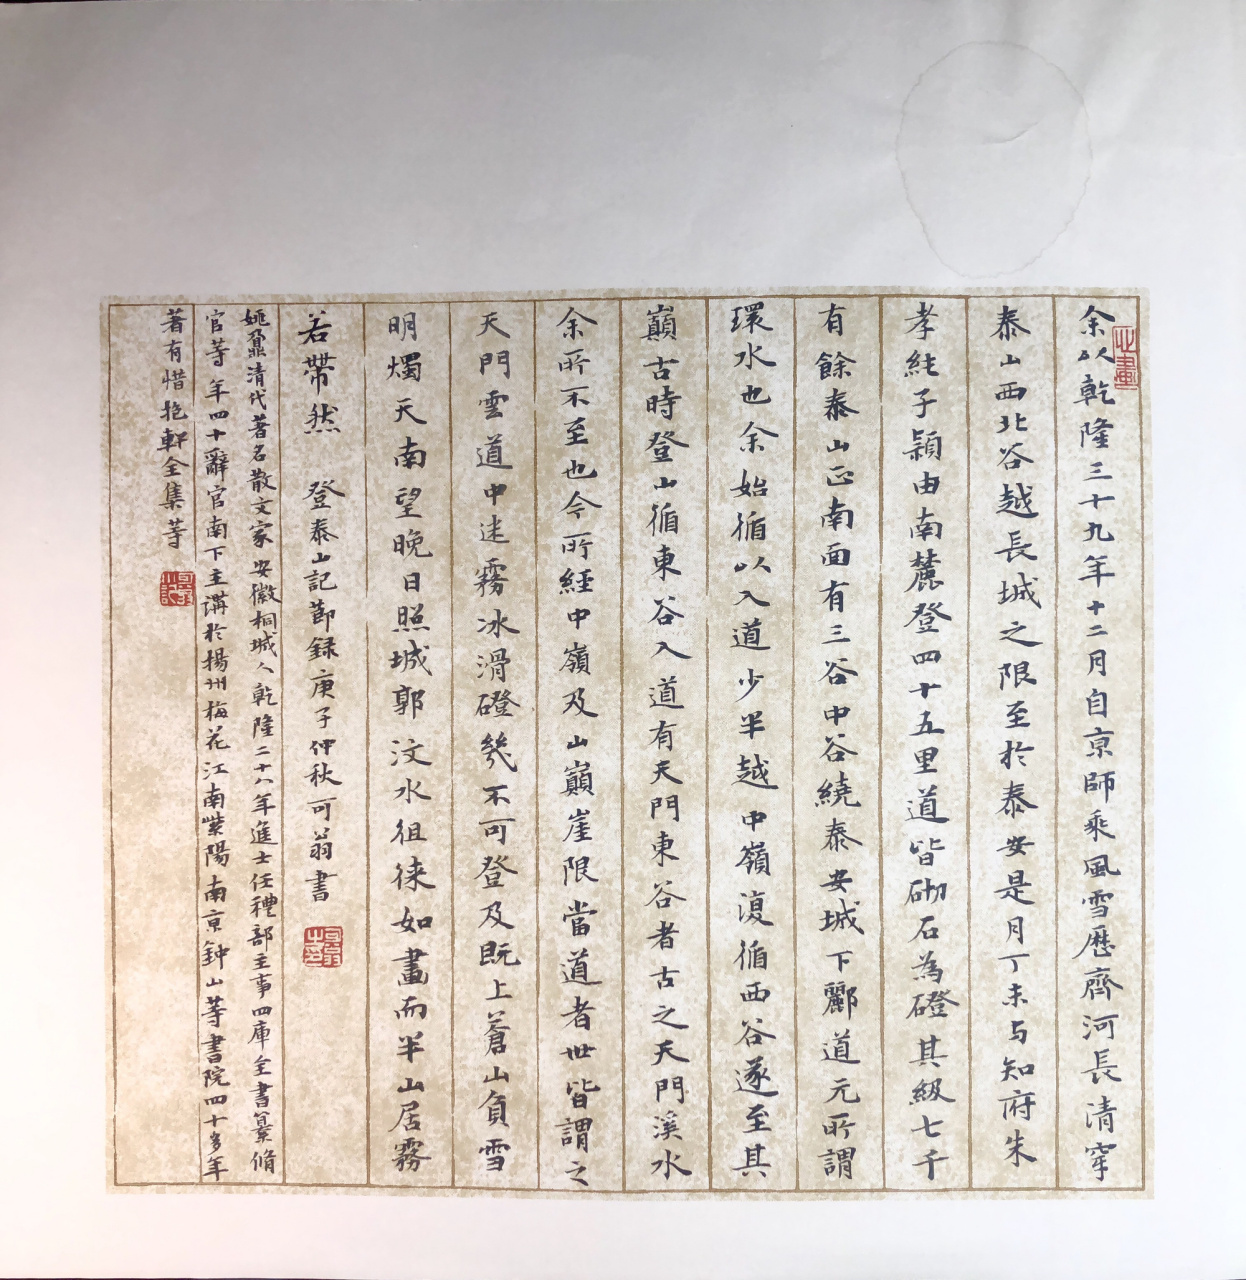 余以乾隆三十九年十二月自京師乘風雪歷齊河長清穿
泰山西北谷越長城之限至於泰安是月丁未与知府朱
孝純子潁由南麓登四十五里道皆砌石為磴其級七千
有餘泰山正南面有三谷中谷繞泰安城下酈道元所謂
環水也余始循以入道少半越中嶺復循西谷遂至其
巔古時登山循東谷入道有天門東谷者古之天門溪水
余所不至也今所經中嶺及山巔崖限當道者世皆謂之
天門雲道中迷霧冰滑磴幾不可登及既上蒼山負雪
明燭天南望晚日照城郭汶水徂徠如畫而半山居霧
若帶然 登泰山記節録庚子仲秋可翁書
姚鼐清代著名散文家安徽桐城人乾隆二十八年進士任禮部主事四庫全書纂脩
官等年四十辭官南下主講於揚州梅花江南紫陽南京鍾山等書院四十多年
著有惜抱軒全集等